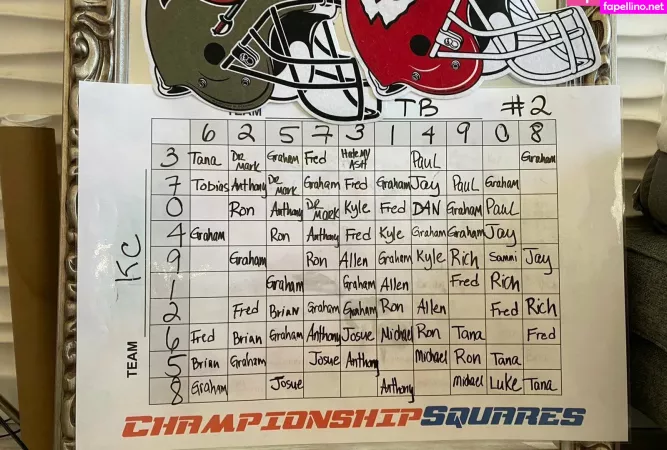 fapellino.net
TEAM TB #2
6 2 5 7 3 1 4 9 0 8
3 Tana DR MARK Graham Fred PAUL Graham
7 Tobias Anthony DR MARK Graham Fred Graham Jay PAUL Graham
0 Ron Anthony DR MARK Kyle Fred DAN Graham PAUL
4 Graham Ron Anthony Fred Kyle Graham Graham Jay
KC
9 Graham Ron Allen Graham Kyle Rich Sammi Jay
1 Graham Graham Allen Fred Rich
2 Fred Brian Graham Graham Ron Allen Fred Rich
6 Fred Brian Graham Anthony Josue Michael Ron Tana Fred
TEAM
5 Brian Graham Josue Anthony Michael Ron Tana
8 Graham Josue Anthony Michael Luke Tana
CHAMPIONSHIPSQUARES